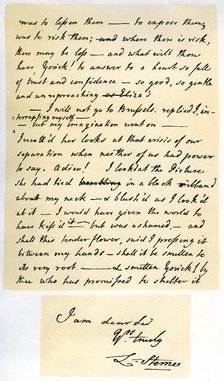 was to lessen them — to expose them,
was to risk them; and where there is risk,
there may be loss — and what wilt thou
have Yorick! to answer to a heart so full
of trust and confidence — so good, so gentle
and unreproaching as Eliza's
— I will not go to Brussels, replied I, in-
terrupting myself —
— but my imagination went on —
I recall'd her looks at that crisis of our
separation when neither of us had power
to say, Adieu! I look'd at the Picture
she had tied in a black ribband
about my neck — & blush'd as I look'd
at it — I would have given the world to
have kiss'd it — but was ashamed, — and
shall this tender flower, said I pressing it
between my hands — shall it be smitten to
its very root — & smitten Yorick! by
thee who has promised to shelter it
I am dear
Yrs truly
L. Sterne